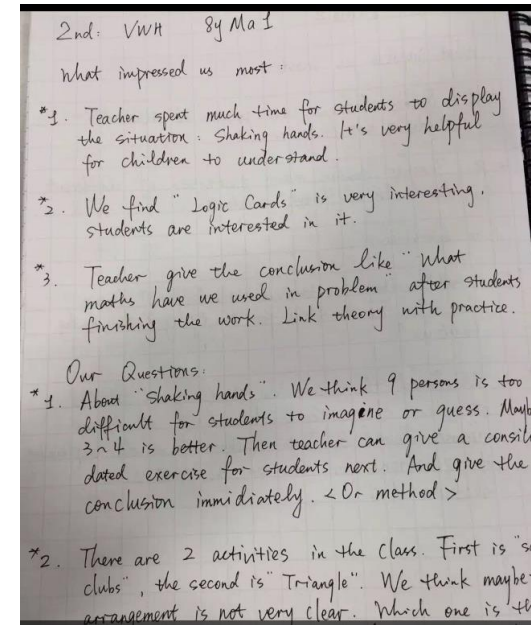 2nd: VWH 8y Ma 1
What impressed us most:
*1. Teacher spent much time for students to display
the situation: Shaking hands. It's very helpful
for children to understand.
*2. We find "Logic Cards" is very interesting.
students are interested in it.
*3. Teacher give the conclusion like "What
maths have we used in problem" after students
finishing the work. Link theory with practice.
Our Questions:
*1. About "Shaking hands". We think 9 persons is too
difficult for students to imagine or guess. Mayb
3~4 is better. Then teacher can give a consili
dated exercise for students next. And give the
conclusion immidiately. <Or method>
*2. There are 2 activities in the class. First is "s
clubs", the second is "Triangle". We think maybe
arrangement is not very clear. Which one is th